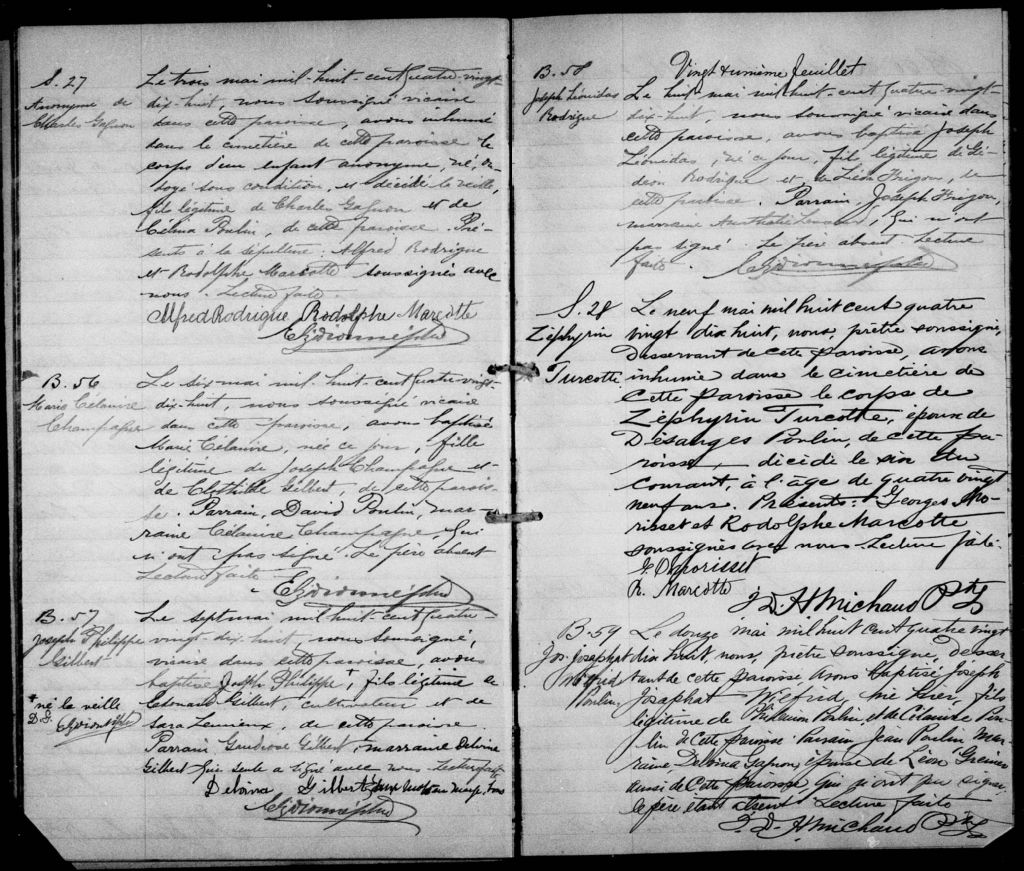 S. 27
Anonyme de
Charles Gagnon
Le trois mai mil-huit-cent quatre-vingt-
dix-huit, nous soussigné vicaire
dans cette paroisse, avons inhumé
dans le cimetière de cette paroisse le
corps d'un enfant anonyme, né, on-
doyé sous condition, et décédé la veille,
fils légitime de Charles Gagnon et de
Célina Poulin, de cette paroisse. Pré-
sents à la sépulture. Alfred Rodrigue
et Rodolphe Marcotte soussignés avec
nous. Lecture faite.
Alfred Rodrigue Rodolphe Marcotte
B. 56
Marie Célanire
Champagne
Le six mai mil-huit-cent quatre-vingt-
dix-huit, nous soussigné vicaire
dans cette paroisse, avons baptisé
Marie Célanire, née ce jour, fille
légitime de Joseph Champagne et
de Clothilde Gilbert, de cette parois-
se. Parrain, David Poulin, mar-
raine Célanire Champagne, qui
n'ont pas signé. Le père absent
Lecture faite
B. 57
Joseph Philippe
Gilbert
+ né la veille
Le sept mai mil-huit-cent quatre-
vingt-dix-huit, nous soussigné,
vicaire dans cette paroisse, avons
baptisé Joseph Philippe +, fils légitime de
Edouard Gilbert, cultivateur et de
Sara Lemieux, de cette paroisse
Parrain Gaudiose Gilbert, marraine Delvina
Gilbert qui seule a signé avec nous Lecture faite
Delvina Gilbert
Vingt & unième feuillet
B. 58
Joseph Léonidas
Rodrigue
Le huit mai mil huit-cent quatre-vingt-
dix-huit, nous soussigné vicaire dans
cette paroisse, avons baptisé Joseph
Léonidas, né ce jour, fils légitime de Gé-
déon Rodrigue et de Léon Grigon, de
cette paroisse. Parrain, Joseph Grigon,
marraine qui n'ont
pas signé. Le père absent Lecture
faite.
S. 28
Zéphyrin
Turcotte
Le neuf mai mil huit cent quatre
vingt dix huit, nous, prêtre soussigné,
desservant de cette paroisse, avons
inhumé dans le cimetière de
cette paroisse le corps de
Zéphyrin Turcotte, époux de
Désanges Poulin, de cette pa-
roisse, décédé le six du
courant, à l'âge de quatre vingt
neuf ans. Présents: Georges Mo-
risset et Rodolphe Marcotte
soussignés avec nous. Lecture faite.
G. Morisset
R. Marcotte
J. D. A. Michaud Ptre
B. 59
Jos. Josaphat
Wilfrid
Poulin
Le douze mai mil huit cent quatre vingt
dix huit, nous, prêtre soussigné, desser
vant de cette paroisse avons baptisé Joseph
Josaphat Wilfrid, né hier, fils
légitime de Philémon Poulin, et de Célanise Pou-
lin de cette paroisse. Parrain Jean Poulin mar-
raine, Delvina Gagnon, épouse de Léon Grenier
aussi de cette paroisse, qui n'ont pu signer,
le père étant absent Lecture faite
J. D. A. Michaud Ptre